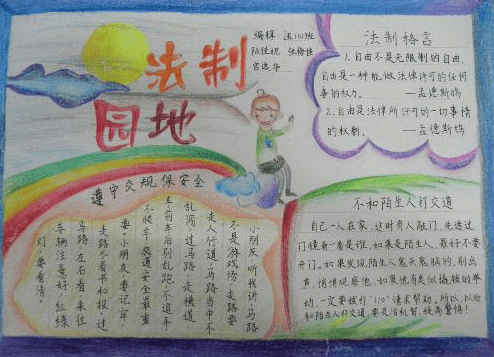 法制
园地
编辑:
法制格言
1.自由不是无限制的自由,
自由是一种能做法律许可的任何
事的权力。 —孟德斯鸠
2.自由是法律所许可的一切事情
的权利。 —孟德斯鸠
遵守交规保安全
小朋友听我讲,马路
不是游戏场,走路要
走人行道,马路当中不
乱闯,过马路,走横道
车前车后别乱跑,不追车
不候车,交通安全最重
要,小朋友,要记牢,
走路不看书和报,过
马路,左右看,来往
车辆注意好,红绿
灯,要看清,
不和陌生人打交道
自己一人在家,这时有人敲门,先透过
门镜看一看是谁,如果是陌生人,最好不要
开门。如果发现陌生人鬼鬼祟祟的,别出
声,悄悄观察他,如果他有类似撬锁的举
动,一定要拨打"110"请求帮助。所以,以后
和陌生人打交道,要灵活机智,提高警惕!